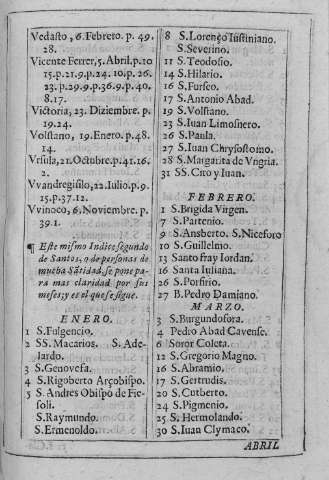 Vedasto, 6. Febrero. p. 49.
28.
Vicente Ferrer, 5. Abril. p. 10
15. p. 21. 9. p. 24. 10. p. 26.
23. p. 29. 9. p. 36. 9. p. 40.
8. 17.
Victoria, 23. Diziembre. p.
19. 24.
Volstano, 19. Enero. p. 48.
14.
Vrsula, 21. Octubre. p. 41. 16.
2.
Vvandregisilo, 22. Iulio. p. 9.
15. p. 37. 12.
Vvinoco, 6. Noviembre. p.
39. 1.
¶ Este mismo Indice segundo
de Santos, o de personas de
mucha Sãtidad, se pone pa-
ra mas claridad por sus
meses; y es el que se sigue.
ENERO.
1 S. Fulgencio.
2 SS. Macarios. S. Ade-
lardo.
3 S. Genovefa.
4 S. Rigoberto Arçobispo.
5 S. Andres Obispo de Fie-
soli.
S. Raymundo.
S. Ermenoldo.
8 S. Lorenço Iustiniano.
S. Severino.
11 S. Teodosio.
14 S. Hilario.
16 S. Furseo.
17 S. Antonio Abad.
19 S. Volstano.
23 S. Iuan Limosnero.
26 S. Paula.
27 S. Iuan Chrysostomo.
28 S. Margarita de Vngria.
31 SS. Ciro y Iuan.
FEBRERO.
1 S. Brigida Virgen.
7 S. Partenio.
9 S. Ansberto. S. Niceforo
10 S. Guillelmo.
13 Santo fray Iordan.
16 Santa Iuliana.
26 S. Porfirio.
27 B. Pedro Damiano.
MARZO.
3 S. Burgundofora.
4 Pedro Abad Cavense.
6 Soror Coleta.
12 S. Gregorio Magno.
16 S. Abramio.
17 S. Gertrudis.
20 S. Cutberto.
24 S. Pigmenio.
25 S. Hermolando.
30 S. Iuan Clymaco.
ABRIL